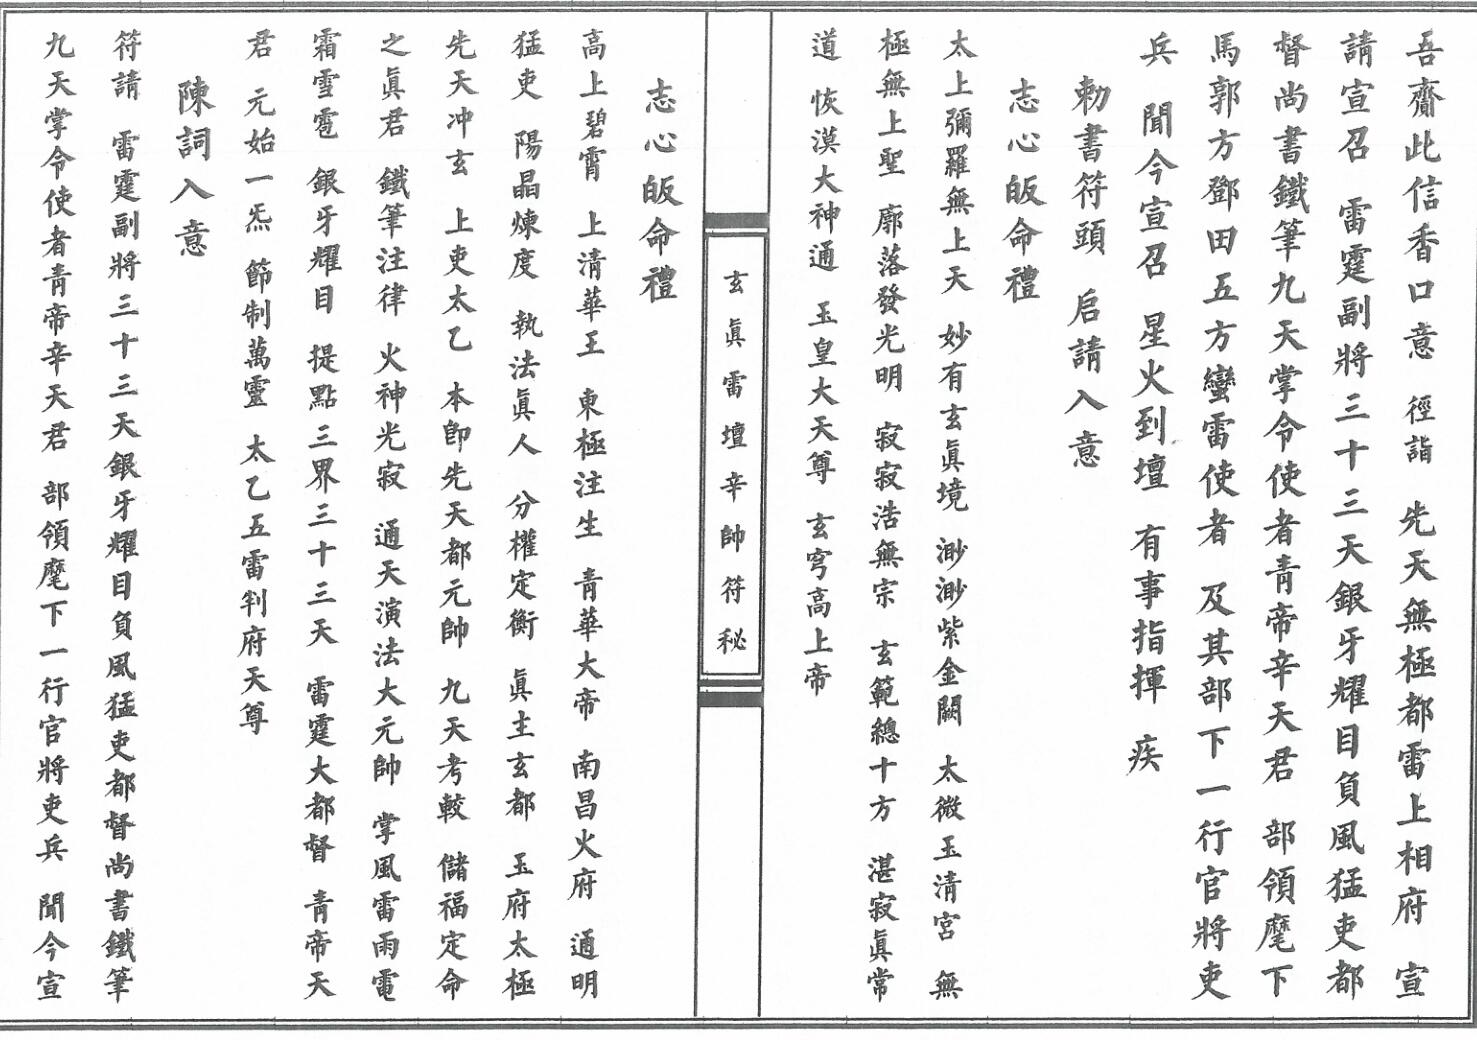 吾齎此信香口意 徑詣 先天無極都雷上相府 宣
請宣召 雷霆副將三十三天銀牙耀目負風猛吏都
督尚書鐵筆九天掌令使者青帝辛天君 部領麾下
馬郭方鄧田五方蠻雷使者 及其部下一行官將吏
兵 聞今宣召 星火到壇 有事指揮 疾
勅書符頭 启請入意
志心皈命禮
太上彌羅無上天 妙有玄眞境 渺渺紫金闕 太微玉清宮 無
極無上聖 廓落發光明 寂寂浩無宗 玄範總十方 湛寂眞常
道 恢漠大神通 玉皇大天尊 玄穹高上帝
玄眞雷壇辛帥符秘
志心皈命禮
高上碧霄 上清華王 東極注生 青華大帝 南昌火府 通明
猛吏 陽晶煉度 執法眞人 分權定衡 眞主玄都 玉府太極
先天冲玄 上吏太乙 本師先天都元帥 九天考較 儲福定命
之眞君 鐵筆注律 火神光寂 通天演法大元帥 掌風雷雨電
霜雪雹 銀牙耀目 提點三界三十三天 雷霆大都督 青帝天
君 元始一炁 節制萬靈 太乙五雷判府天尊
陳詞入意
符請 雷霆副將三十三天銀牙耀目負風猛吏都督尚書鐵筆
九天掌令使者青帝辛天君 部領麾下一行官將吏兵 聞今宣